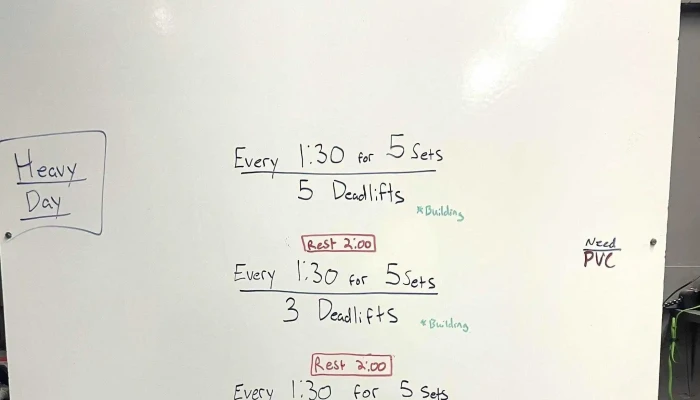 Heavy
Day
Every 1:30 for 5 Sets
5 Deadlifts
*Building
Rest 2:00
Every 1:30 for 5 Sets
3 Deadlifts
*Building
Rest 2:00
Every 1:30 for 5 Sets
Need
PVC